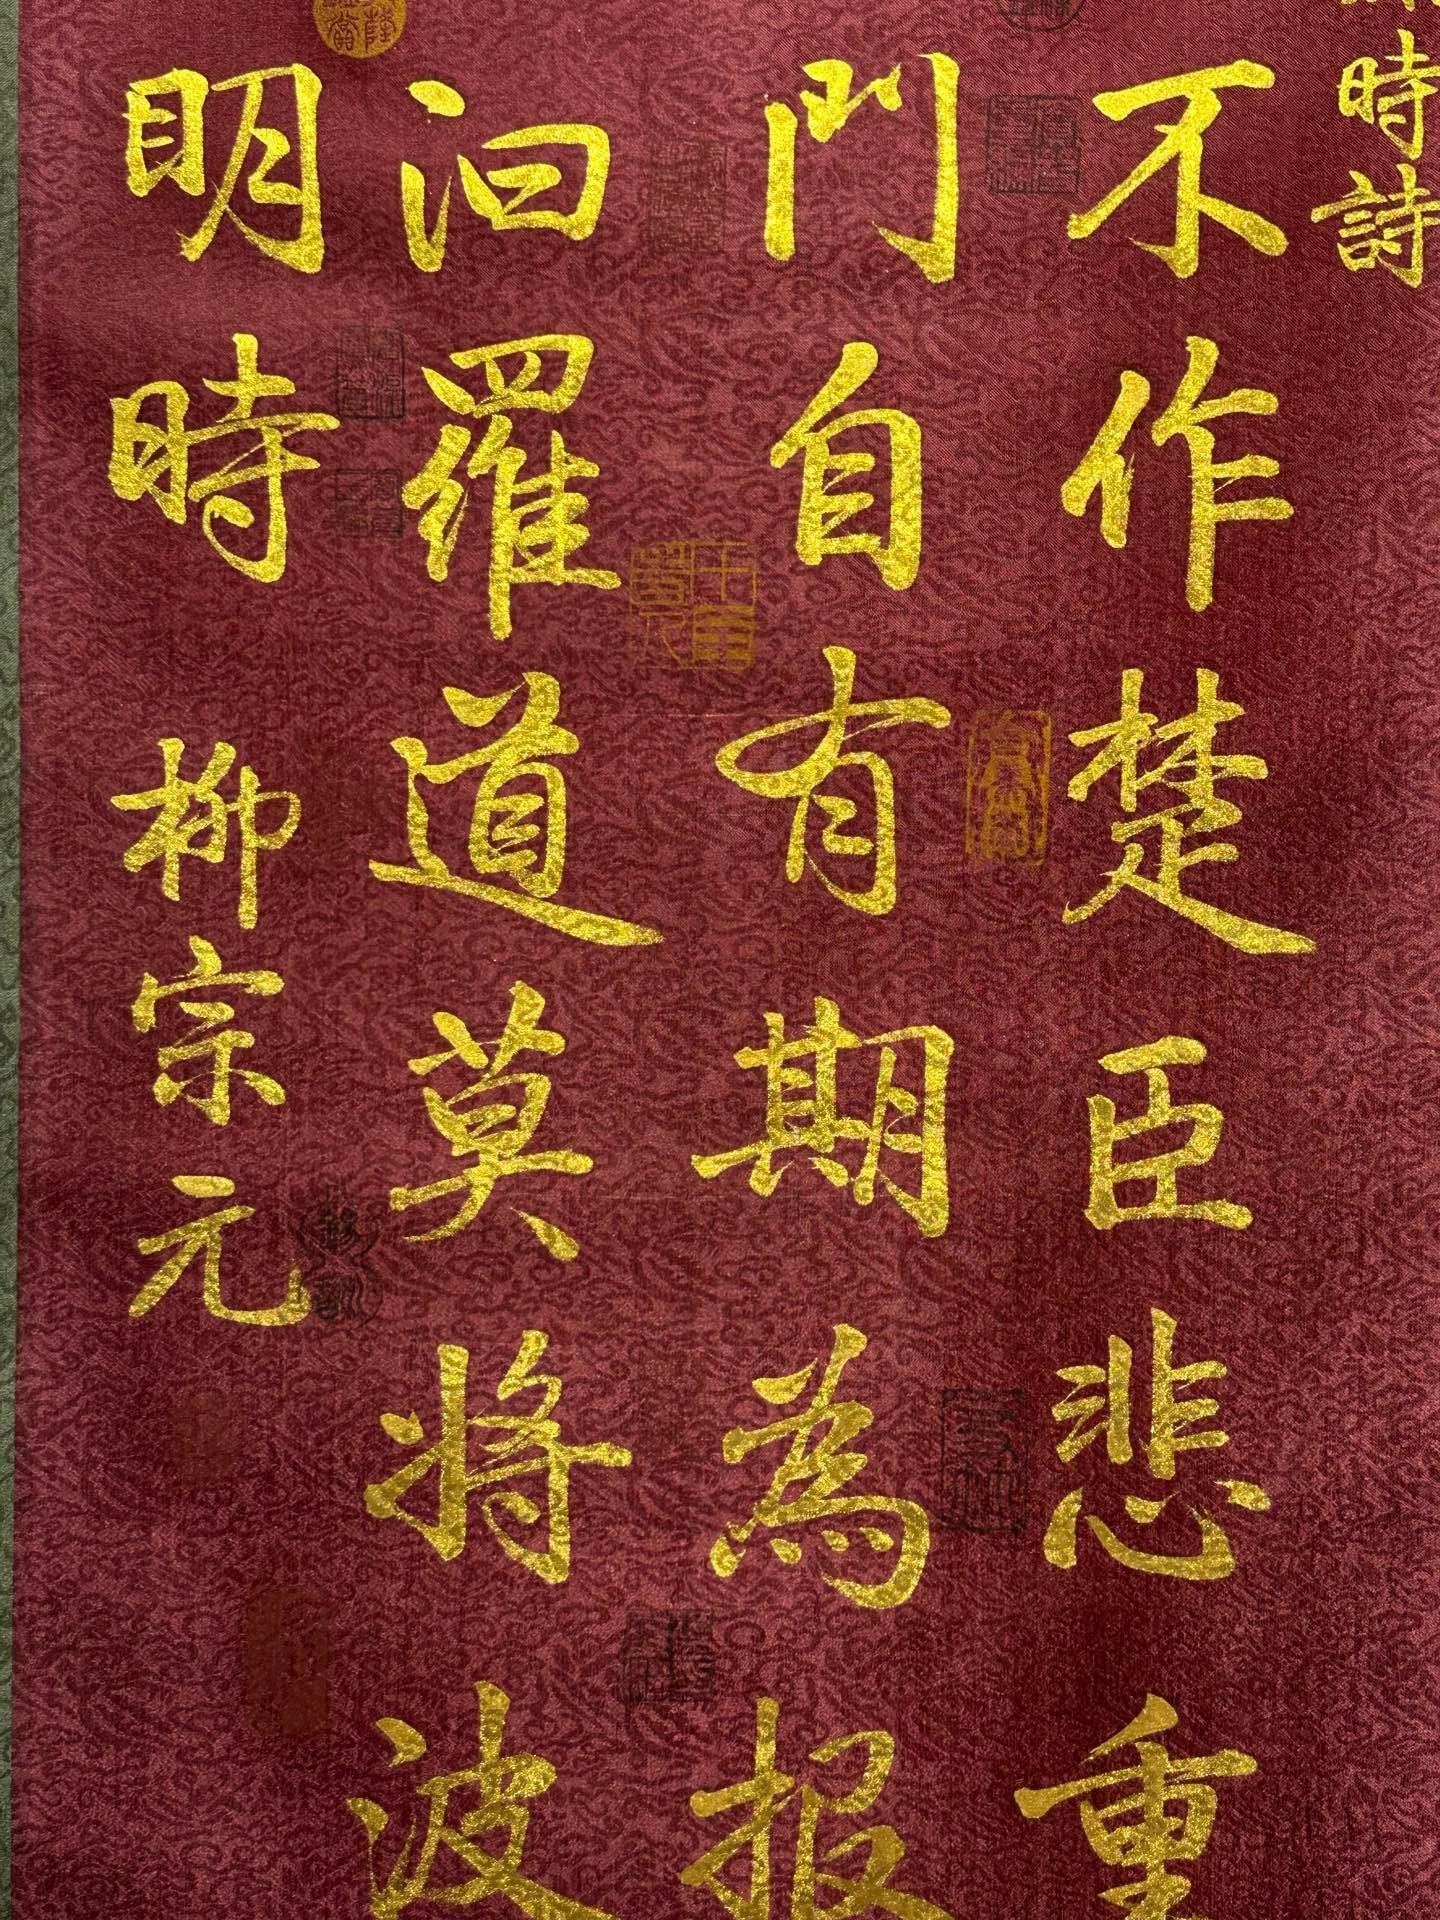 時詩
不作楚臣悲重
門自有期為報
汨羅道莫將波
明時
柳宗元